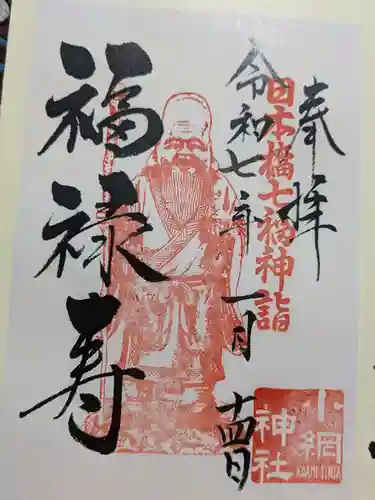 奉拝
日本橋七福神詣
令和七年一月十四日
福禄寿
小網神社
KOAMI JINJA